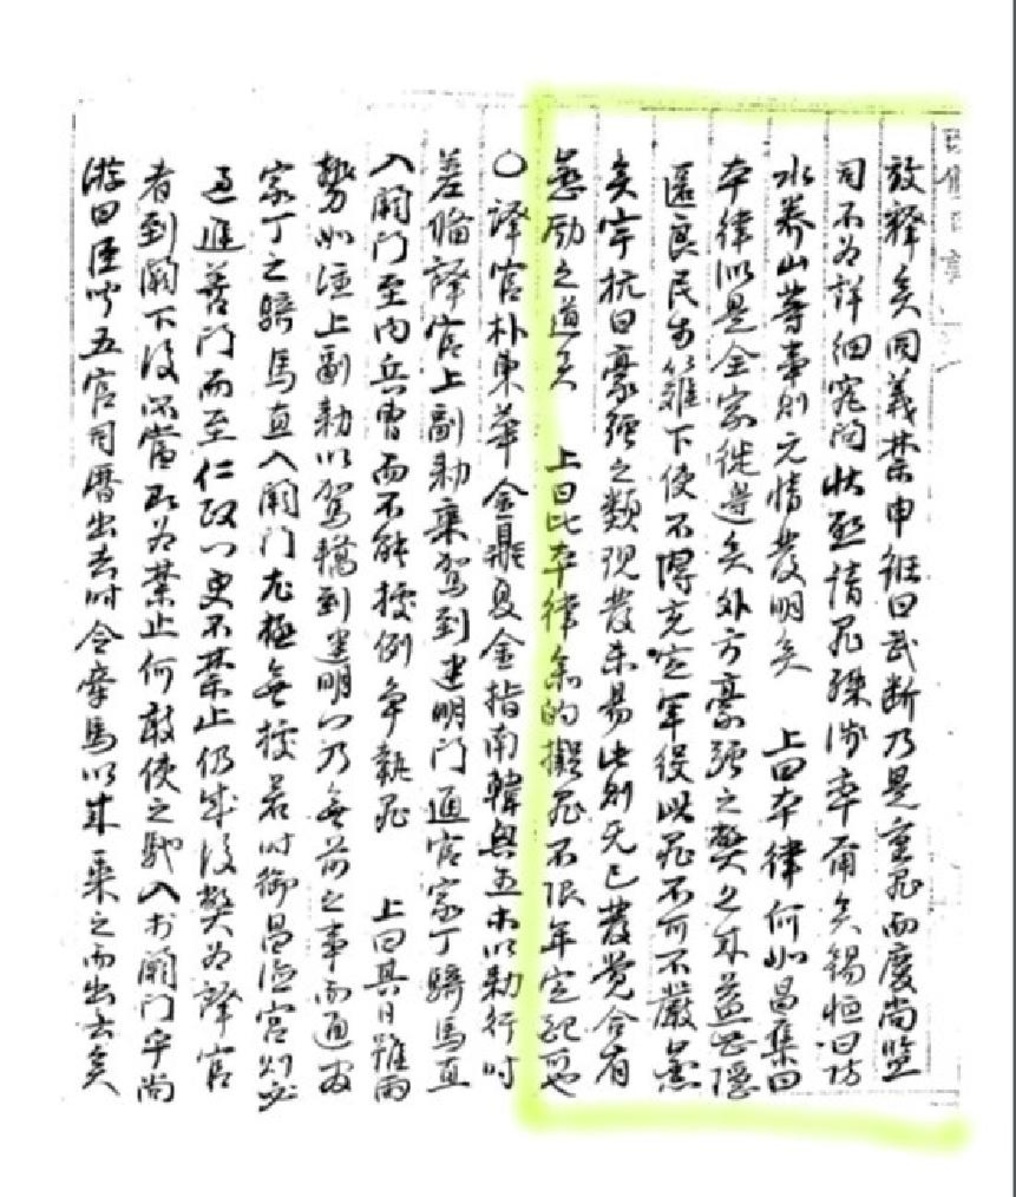 放釋矣同義禁申銋曰武斷乃是重罪而慶尙監
司不爲詳細窮問狀 情罪 涉率爾矣錫恒曰防
水養山等事則元情發明矣 上曰本律何如昌集曰
本律則是全家徙邊矣外方豪强之弊近來益甚隱
匿良民 下使不得充定軍役此罪不可不嚴 
矣宇抗曰豪强之類現發未易此則旣已發覺合有
懲勵之道矣 上曰比本律 的擬罪不限年定配可也
○譯官朴東華金鼎夏金指南韓興五 以勅行時
差備譯官上副勅乘駕到建明門通官家丁騎馬直
入闕門至內兵曹而不能據例爭執罪 上曰其日雖雨
勢如注上副勅以駕轎到建明門乃無前之事而通官
家丁之騎馬直入闕門尤極無據若時御昌德宮則必
過進善門而至仁政門更不禁止仍成後弊爲譯官
者到闕下後所當 爲禁止何敢使之馳入於闕門乎尙
游曰臣聞五官司曆出去時令牽馬以來乘之而出去矣